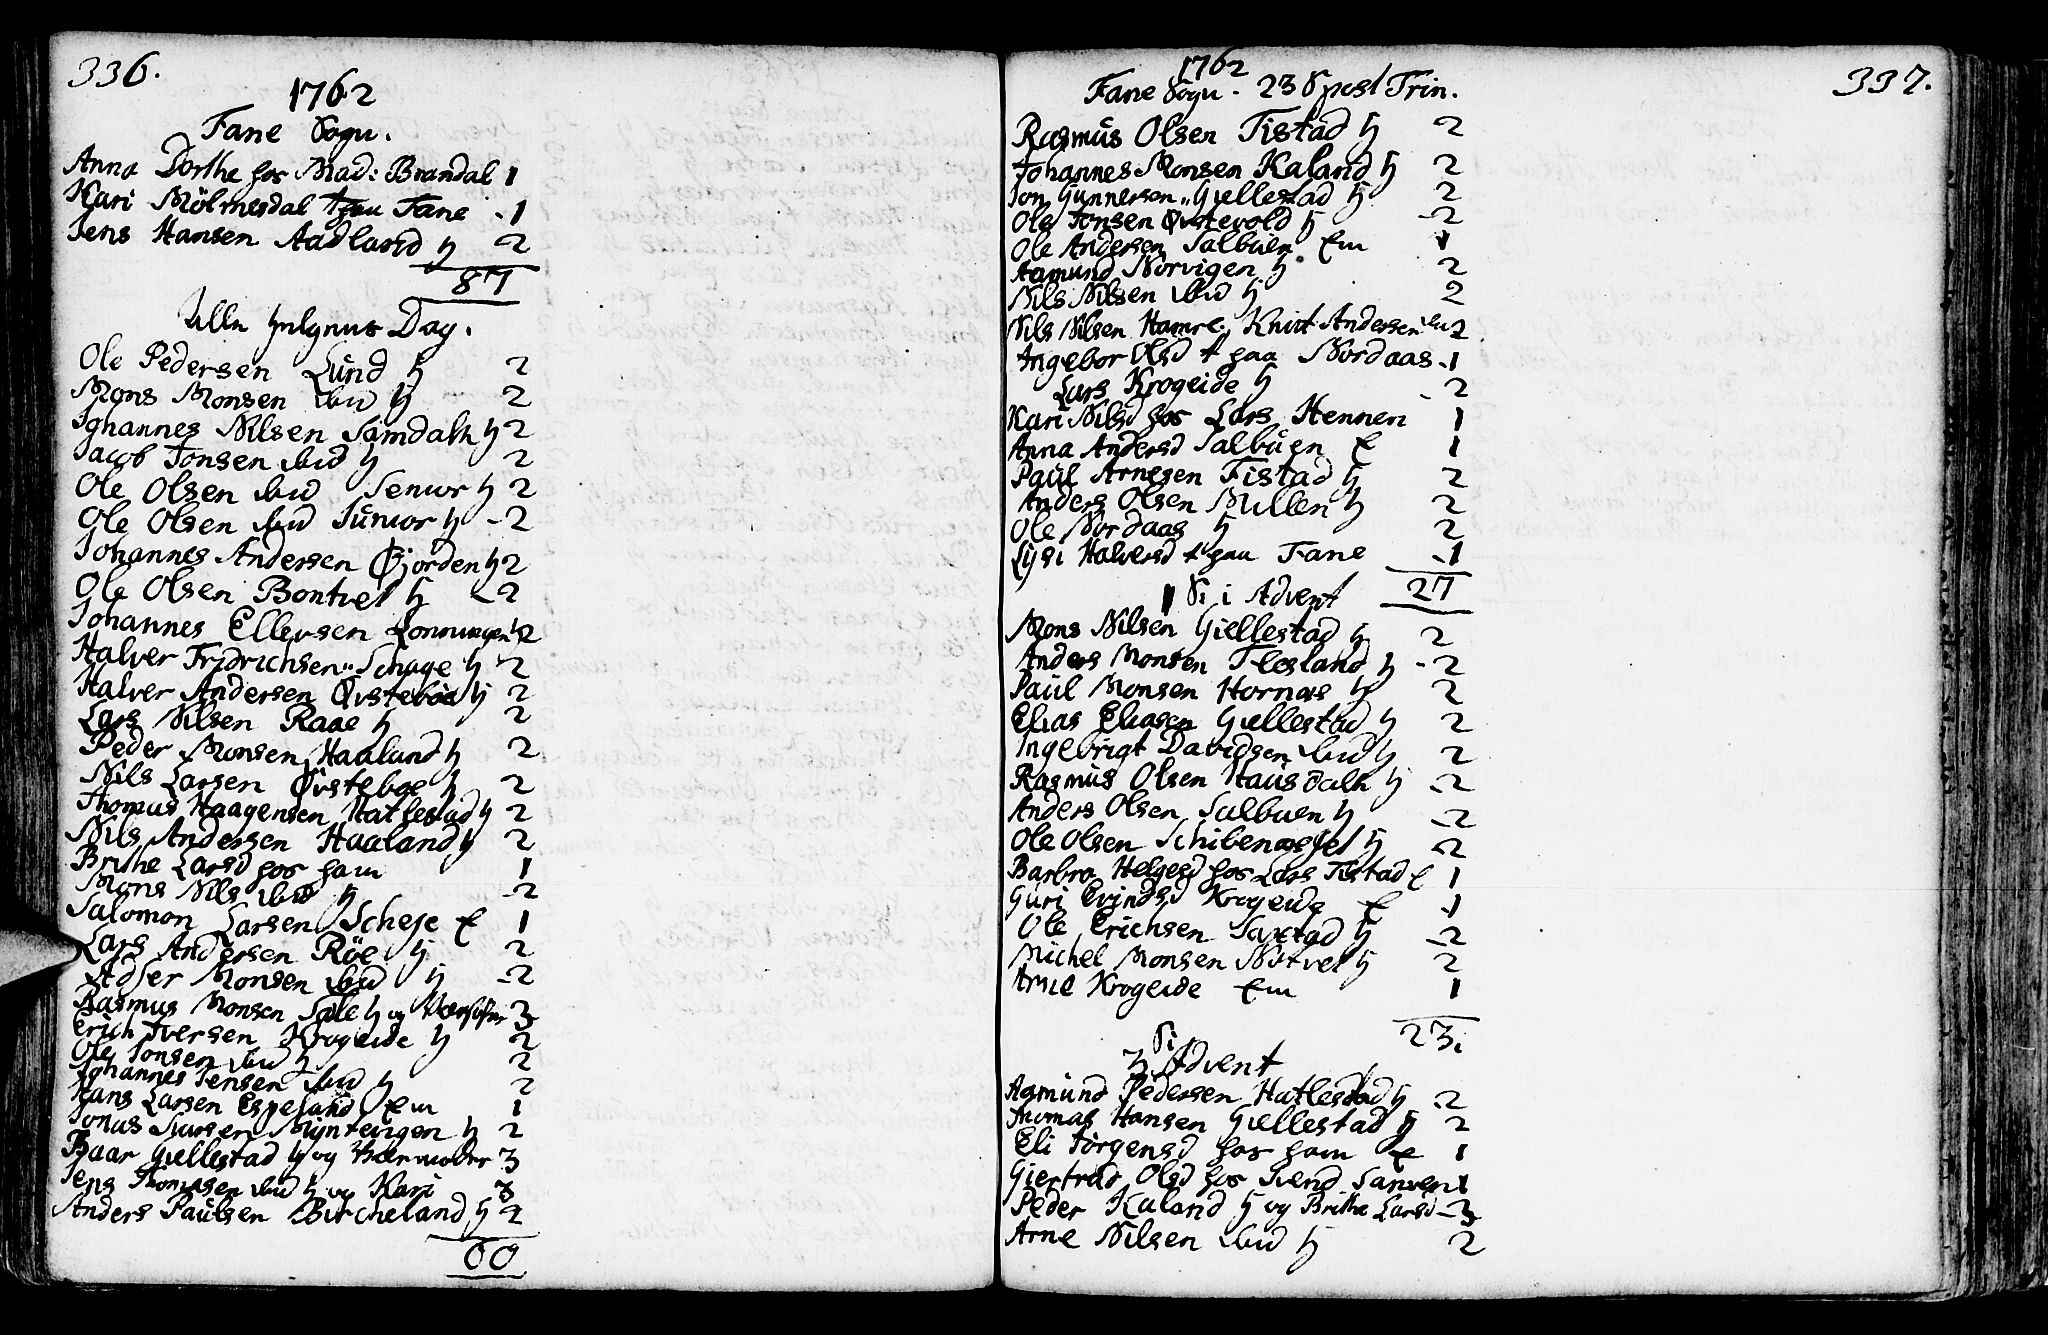 336.
1762
Fane Sogn.
Anna Dorthe hos Mad: Brandal 1
Kari Mölmesdal t paa Fane - 1
Jens Hansen Aadland ɧ 2
87
Alle Helgens Dag.
Ole Pedersen Lund ɧ 2
Mons Monsen ibid ɧ 2
Johannes Nilsen Samdaln ɧ 2
Jacob Jonsen ibid ɧ 2
Ole Olsen ibid Senior ɧ 2
Ole Olsen ibid Junior ɧ - 2
Johannes Andersen Øjorden ɧ 2
Ole Olsen Bontvet ɧ 2
Johannes Ellersen Lonningen ɧ 2
Halver Fridrichsen Schage ɧ 2
Halver Andersen Øvsteboe ɧ 2
Lars Nilsen Raae ɧ 2
Peder Monsen Haaland ɧ 2
Nils Larsen Øvsteboe ɧ 2
Thomas Haagensen Hatlestad ɧ 2
Nils Andersen Haaland ɧ 2
Brithe Larsd hos ham 1
Mons Nils ibid ɧ 2
Salomon Larsen Scheje E 1
Lars Andersen Röe ɧ 2
Adser Monsen ibid ɧ 2
Rasmus Monsen Sæle ɧ og 3
Erich Iversen Krogeide ɧ 2
Ole Jonsen ibid ɧ 2
Johannes Jensen ibid ɧ 2
Hans Larsen Espeland Em 1
Jonas Myntevigen ɧ 2
Baar Giellestad ɧ og Værmoder 3
Jens Thomasen ibid ɧ og Kari 3
Anders Paulsen Bircheland ɧ 2
60
337.
1762
Fane Sogn. 23 S post Trin.
Rasmus Olsen Tistad ɧ 2
Johannes Monsen Kaland ɧ 2
Jon Gunnersen Giellestad ɧ 2
Ole Jonsen Øvstevold ɧ 2
Ole Andersen Salbuen Em 1
Aamund Norvigen ɧ 2
Nils Nilsen ibid ɧ 2
Nils Nilsen Hamre, Knut Andersen Em 2
Ingebor Olsd t paa Nordaas 1
Lars Krogeide ɧ 2
Kari Nilsd hos Lars Hennen 1
Anna Andersd Salbuen E 1
Paul Arnesen Tistad ɧ 2
Anders Olsen Millen ɧ 2
Ole Nordaas ɧ 2
Lysi Halversd t paa Fane 1
27
1 S. i Advent
Mons Nilsen Giellestad ɧ 2
Anders Monsen Flesland ɧ - 2
Paul Monsen Hornæs ɧ 2
Elias Eliasen Giellestad ɧ 2
Ingebrigt Davidsen ibid ɧ 2
Rasmus Olsen Hausdaln ɧ 2
Anders Olsen Salbuen ɧ 2
Ole Olsen Schibenæsset ɧ 2
Barbro Helgesd hos Lars Tistad E 1
Guri Evindsd Krogeide E 1
Ole Erichsen Saxtad ɧ 2
Michel Monsen Nötvet ɧ 2
Arne Krogeide Em 1
23
S.
3 Advent
Aamund Pedersen Hatlestad ɧ 2
Thomas Hansen Giellestad ɧ 2
Eli Jörgensd hos ham E 1
Giertrud Olsd hos Svend Sanven 1
Peder Kaland ɧ og Brithe Larsd 3
Arne Nilsen ibid ɧ 2